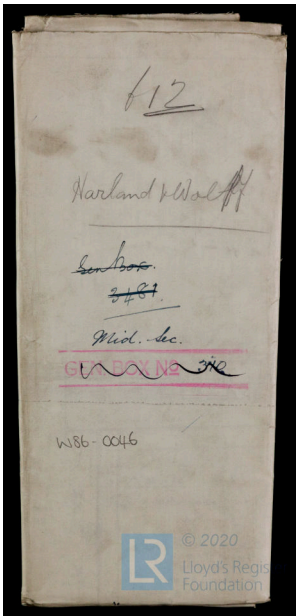 612
Harland & Wolff
Gen Box.
3481
Mid. Sec.
GEN. BOX Nº 340
W86-0046
LR
© 2020
Lloyd's Regis
Foundation